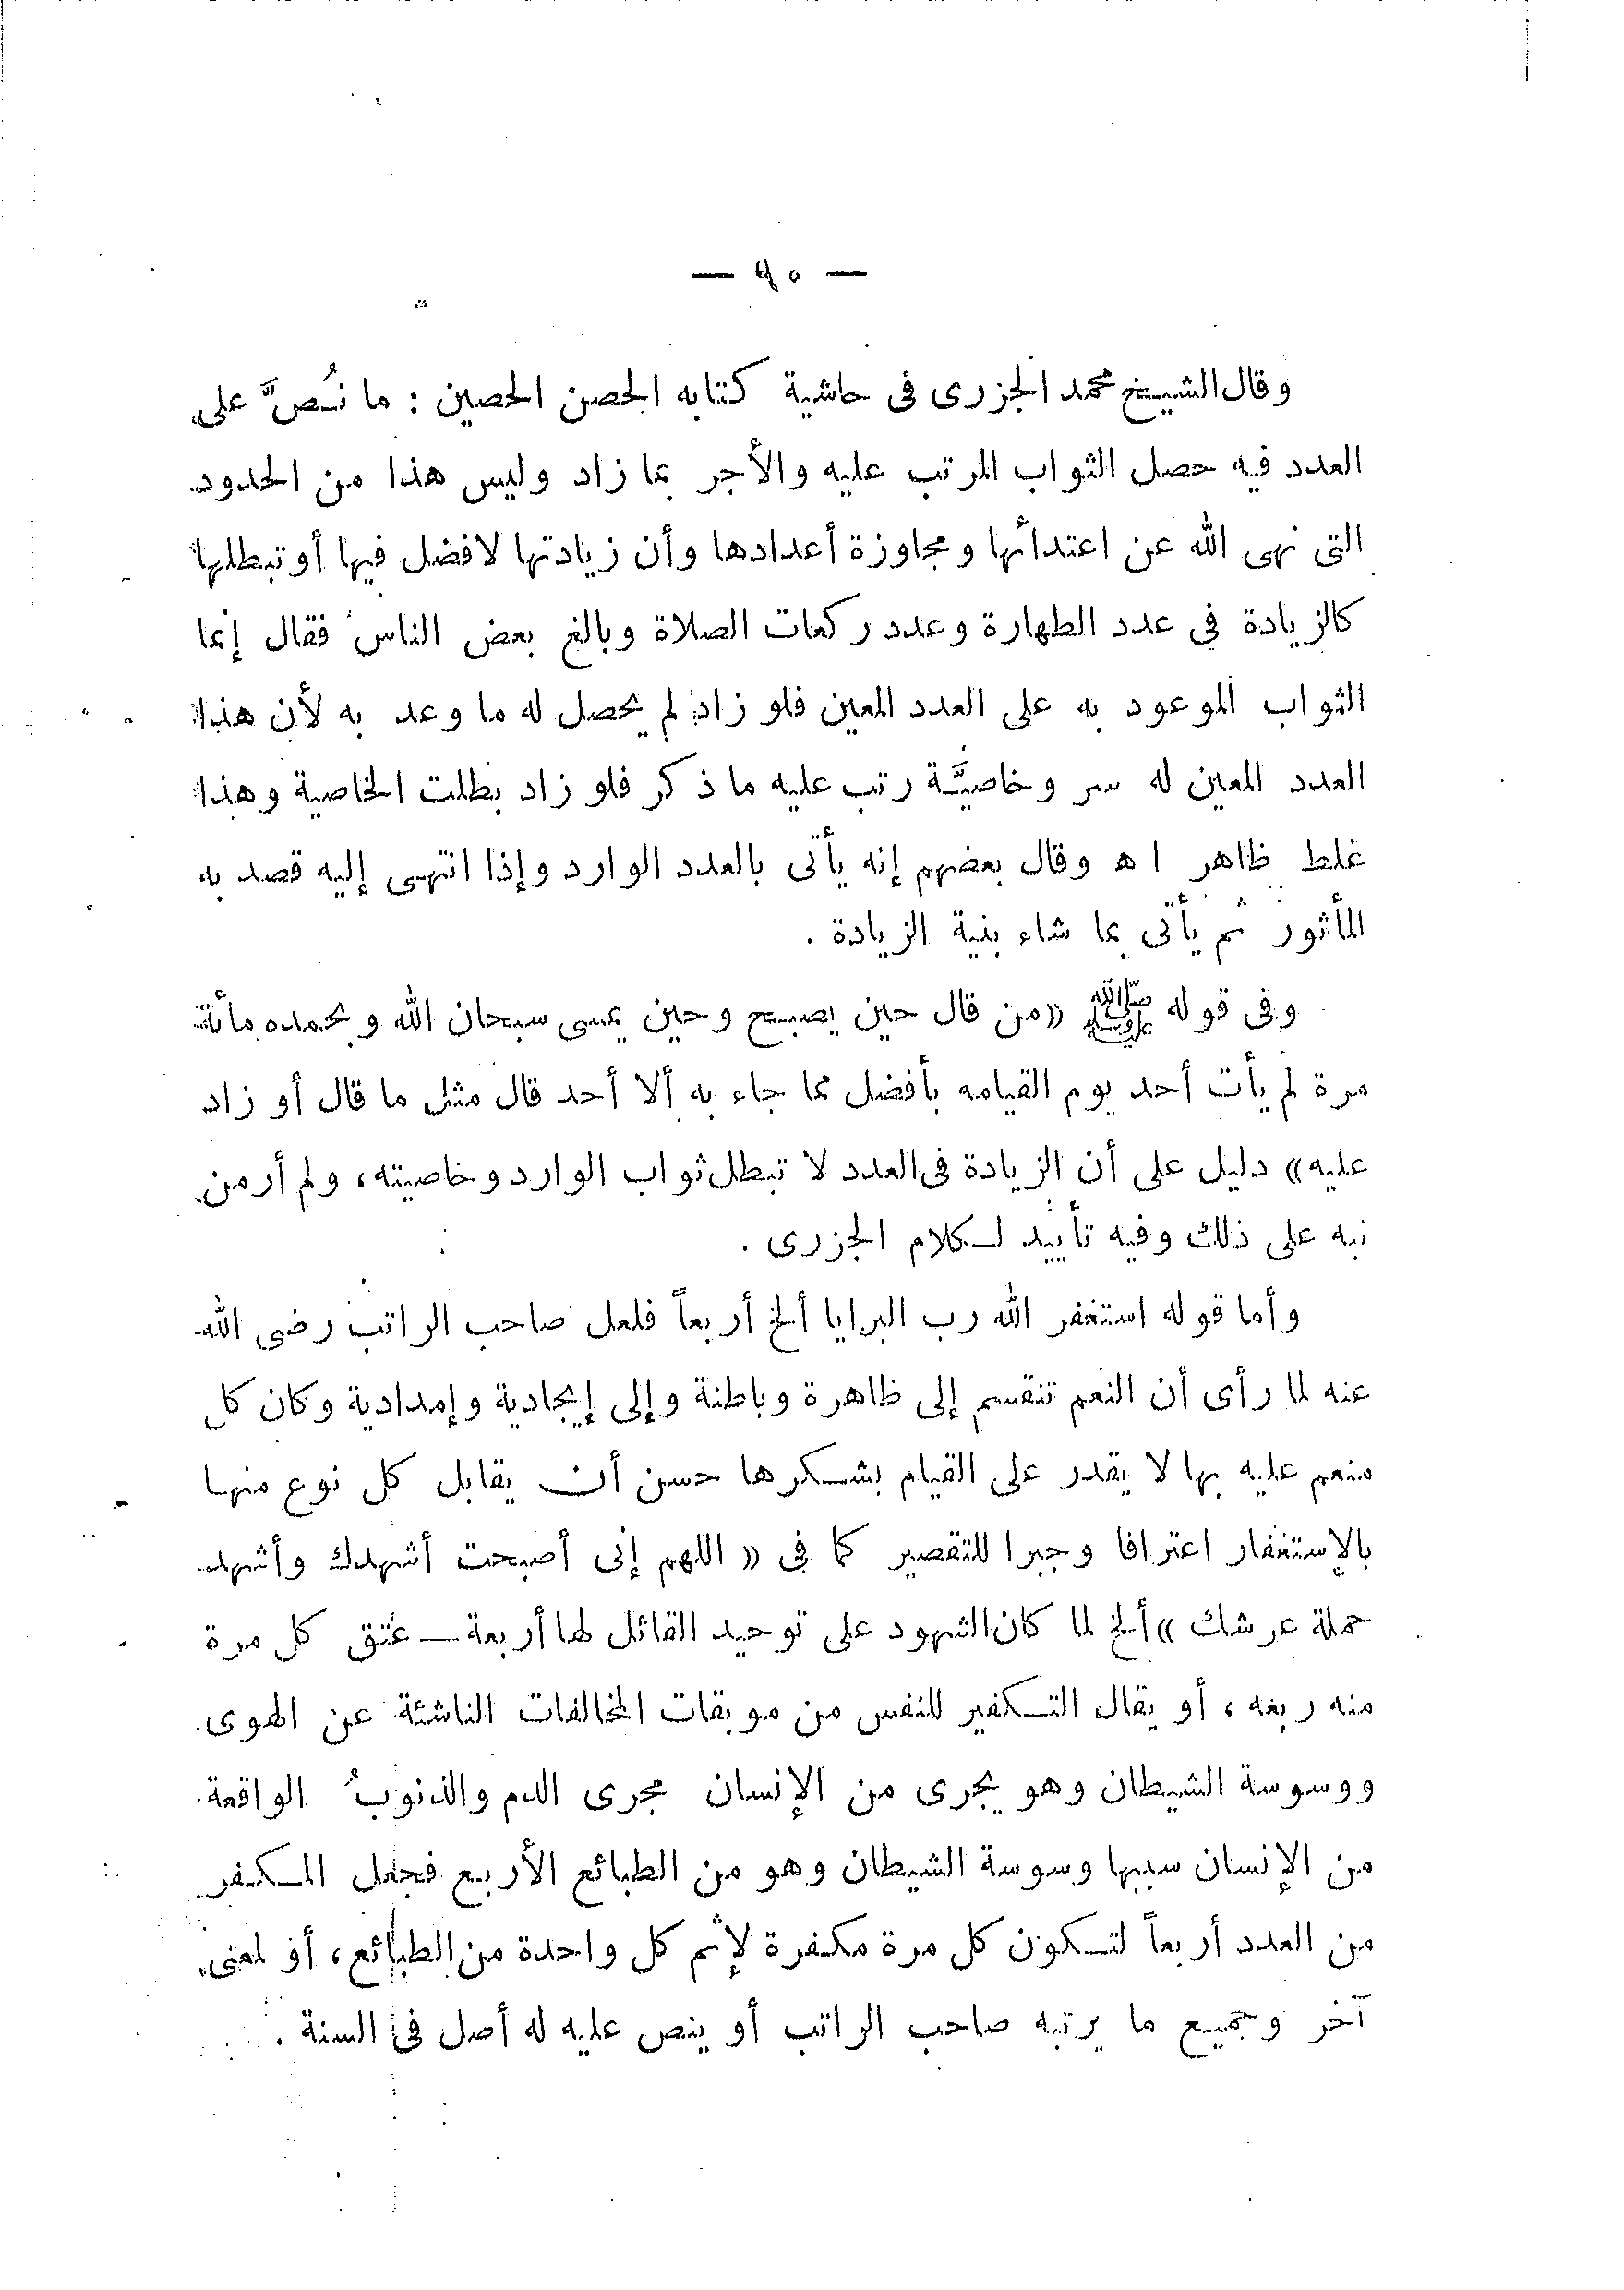 — ٩٠ —
وقال الشيخ محمد الجزرى فى حاشية كتابه الحصن الحصين : ما نُـصَّ على
العدد فيه حصل الثواب المرتب عليه والأجر بما زاد وليس هذا من الحدود
التى نهى الله عن اعتدائها ومجاوزة أعدادها وأن زيادتها لافضل فيها أو تبطلها
كالزيادة فى عدد الطهارة وعدد ركعات الصلاة وبالغ بعض الناس فقال إنما
الثواب الموعود به على العدد المعين فلو زاد لم يحصل له ما وعد به لأن هذا
العدد المعين له سر وخاصيَّة رتب عليه ما ذكر فلو زاد بطلت الخاصية وهذا
غلط ظاهر ا ه وقال بعضهم إنه يأتى بالعدد الوارد وإذا انتهى إليه قصد به
المأثور ثم يأتى بما شاء بنية الزيادة .
وفى قوله ﷺ «من قال حين يصبح وحين يمسى سبحان الله وبحمده مائة
مرة لم يأت أحد يوم القيامه بأفضل مما جاء به ألا أحد قال مثل ما قال أو زاد
عليه» دليل على أن الزيادة فى العدد لا تبطل ثواب الوارد وخاصيته، ولم أر من
نبه على ذلك وفيه تأييد لـكلام الجزرى .
وأما قوله استغفر الله رب البرايا ألخ أربعاً فلعل صاحب الراتب رضى الله
عنه لما رأى أن النعم تنقسم إلى ظاهرة وباطنة وإلى إيجادية وإمدادية وكان كل
منعم عليه بها لا يقدر على القيام بشـكرها حسن أن يقابل كل نوع منها
بالإستغفار اعترافا وجبرا للتقصير كما فى « اللهم إنى أصبحت أشهدك وأشهد
حملة عرشك » ألخ لما كان الشهود على توحيد القائل لها أربعة ــ عتق كل مرة
منه ربعه ، أو يقال التـكفير للنفس من موبقات المخالفات الناشئة عن الهوى
ووسوسة الشيطان وهو يجرى من الإنسان مجرى الدم والذنوب الواقعة
من الإنسان سببها وسوسة الشيطان وهو من الطبائع الأربع فجعل المـكفر
من العدد أربعاً لتـكون كل مرة مكفرة لإثم كل واحدة من الطبائع، أو لمعنى
آخر وجميع ما يرتبه صاحب الراتب أو ينص عليه له أصل فى السنة .